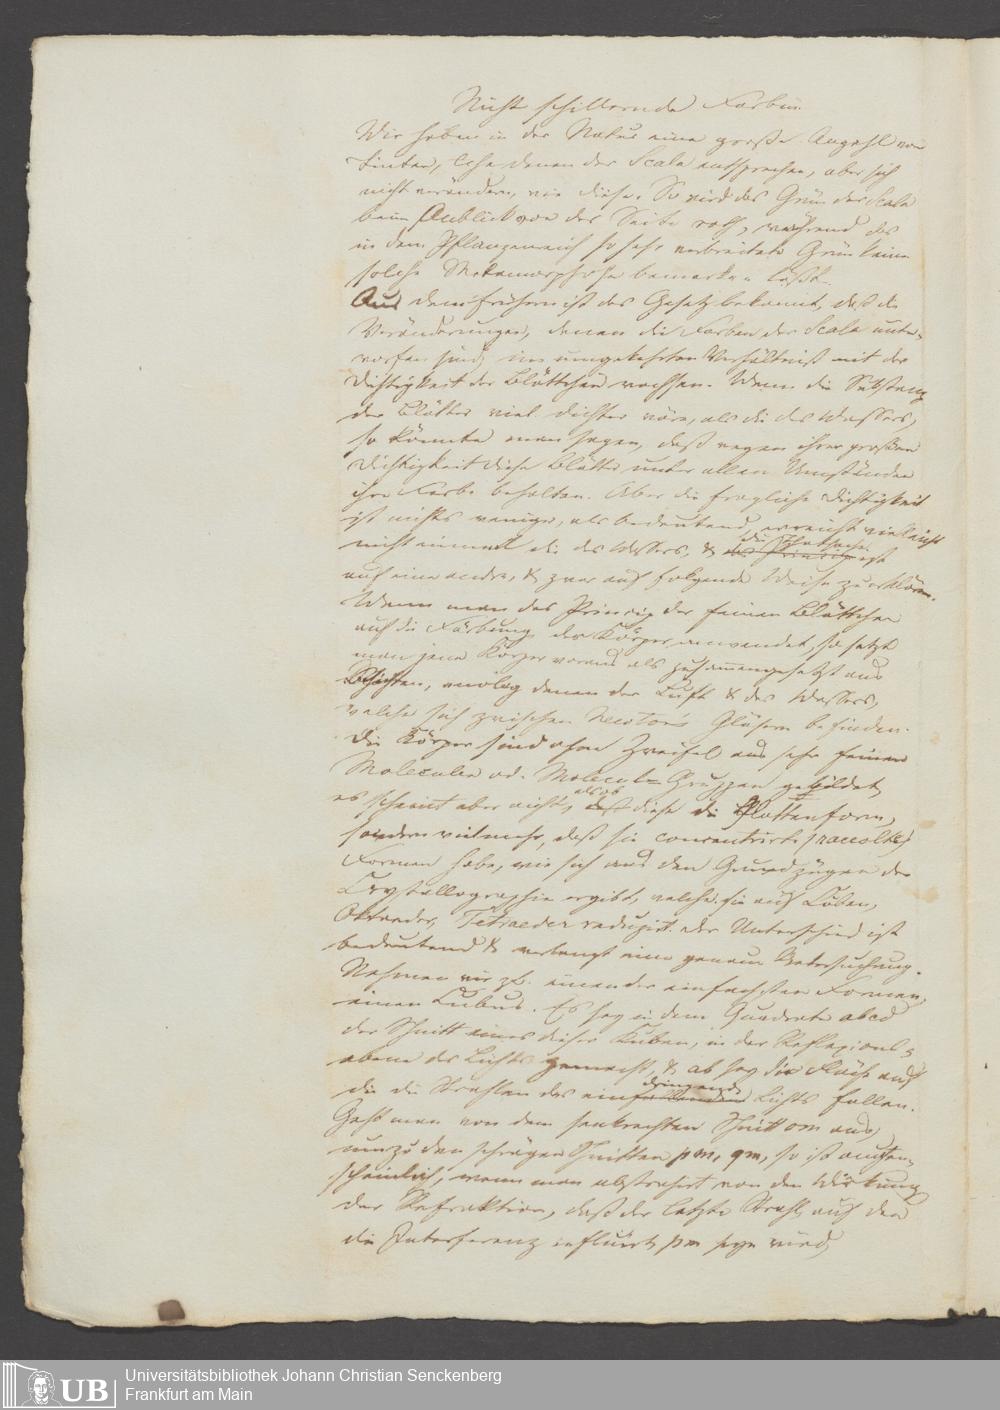 Nicht schillernde Farben.
Wir haben in der Natur eine große Anzahl von
Tinten, welche denen der Scala entsprechen, aber sich
nicht verändern, wie diese. So wird das Grün der Scala
beim Anblick von der Seite roth, während das
in dem Pflanzenreich so sehr verbreitete Grün keine
solche Metamorphose bemerken läßt.
Aus dem frühern ist das Gesetz bekannt, daß die
Veränderungen, denen die Farben der Scala unter-
worfen sind, im umgekehrten Verhältniß mit der
Dichtigkeit der Blättchen wachsen. Wenn die Substanz
der Blätter viel dichter wäre, als die des Wassers,
so könnte man sagen, daß wegen ihrer großen
Dichtigkeit diese Blätter unter allen Umständen
ihre Farbe behalten. Aber die fragliche Dichtigkeit
ist nichts weniger, als bedeutend, erreicht vielleicht
nicht einmal die des Wassers, & die Thatsache ist
auf eine andre, & zwar auf folgende Weise zu erklären.
Wenn man das Prinzip der feinen Blättchen
auf die Färbung der Körper anwendet, so setzt
man jene Körper voraus als zusammengesetzt aus
Schichten, analog denen der Luft & des Wassers,
welche sich zwischen Newton's Gläsern befinden.
Die Körper sind ohne Zweifel aus sehr feinen
Molecülen od. Molecul-Gruppen gebildet,
es scheint aber nicht, als ob diese die Plattenform,
sondern vielmehr, daß sie concentrirte (raccolte)
Formen habe, wie sich aus den Grundzügen der
Crystallographie ergibt, welche sie auf Cuben,
Oktaeder, Tetraeder reduzirt. Der Unterschied ist
bedeutend & verlangt eine genaue Untersuchung.
Nehmen wir z.B. eine der einfachsten Formen,
einen Cubus. Es sey in dem Quadrate abcd
der Schnitt eines dieser Kuben, in der Reflexions-
ebene des Lichts gemacht, & ab sey die Fläche auf
die die Strahlen des eindringenden Lichts fallen.
Geht man von dem senkrechten Schnitt om aus,
um zu den schrägen Schnitten pm, qm, so ist augen-
scheinlich, wenn man abstrahirt von den Wirkung
der Refraktion, daß der letzte Strahl, auf den
die Interferenz influirt, pm seyn wird,
Universitätsbibliothek Johann Christian Senckenberg
Frankfurt am Main
UB